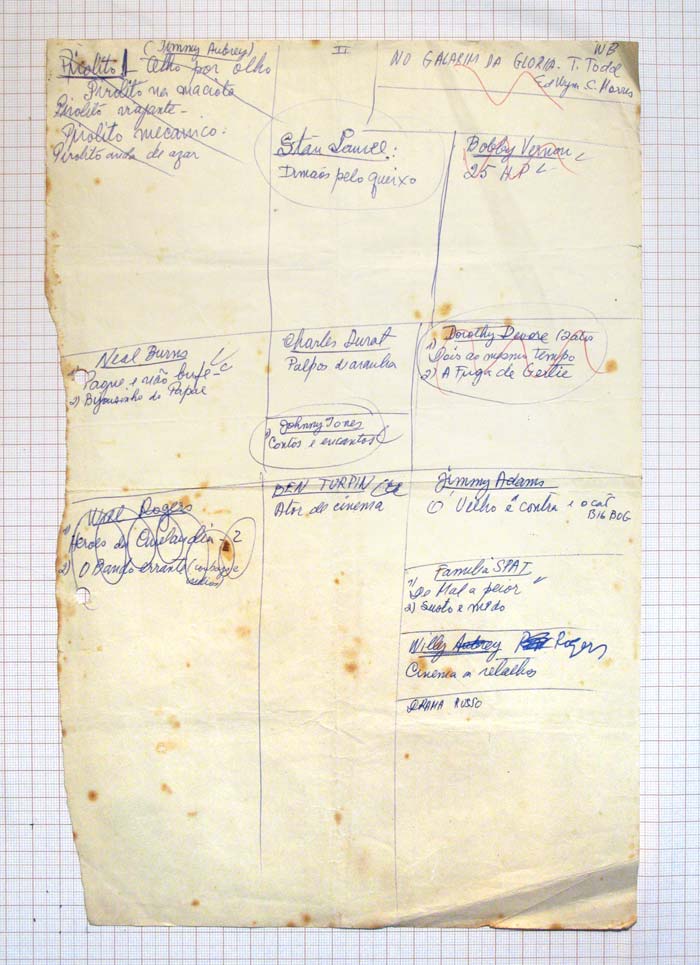 (Jimmy Aubrey)
Picolito - olho por olho
Pirolito na maciota
Pirolito viajante -
Pirolito mecanico:
Pirolito anda de azar
II
WB
NO GALARIM DA GLORIA - T. Todd
Stan Laurel:
Irmãos pelo queixo
Bobby Vernon
25 H P
Neal Burns
1) Pague e não bufe -
2) Bijouzinho do Papae
Charles Durat
Palpos d'aranha
Johnny Jones
Contos e encantos
Dorothy Devore (2 atos
1) Dois ao mesmo tempo
2) A Fuga de Gertie
Will Rogers
1) Heroes da Cinelandia - 2
2) O Bando errante
BEN TURPIN
Ator de cinema
Jimmy Adams
Velho é contra e o cat
BIG BOG
Familia SPAT
1) De Mal a peior
2) Susto e medo
Willy Aubrey Rogers
Cinema a retalhos
DRAMA RUSSO